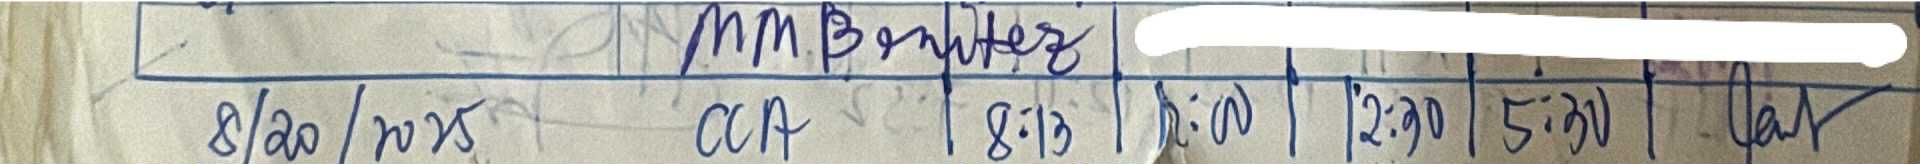 MM Benitez
8/20/2025 CCA 8:13 12:00 12:30 5:30